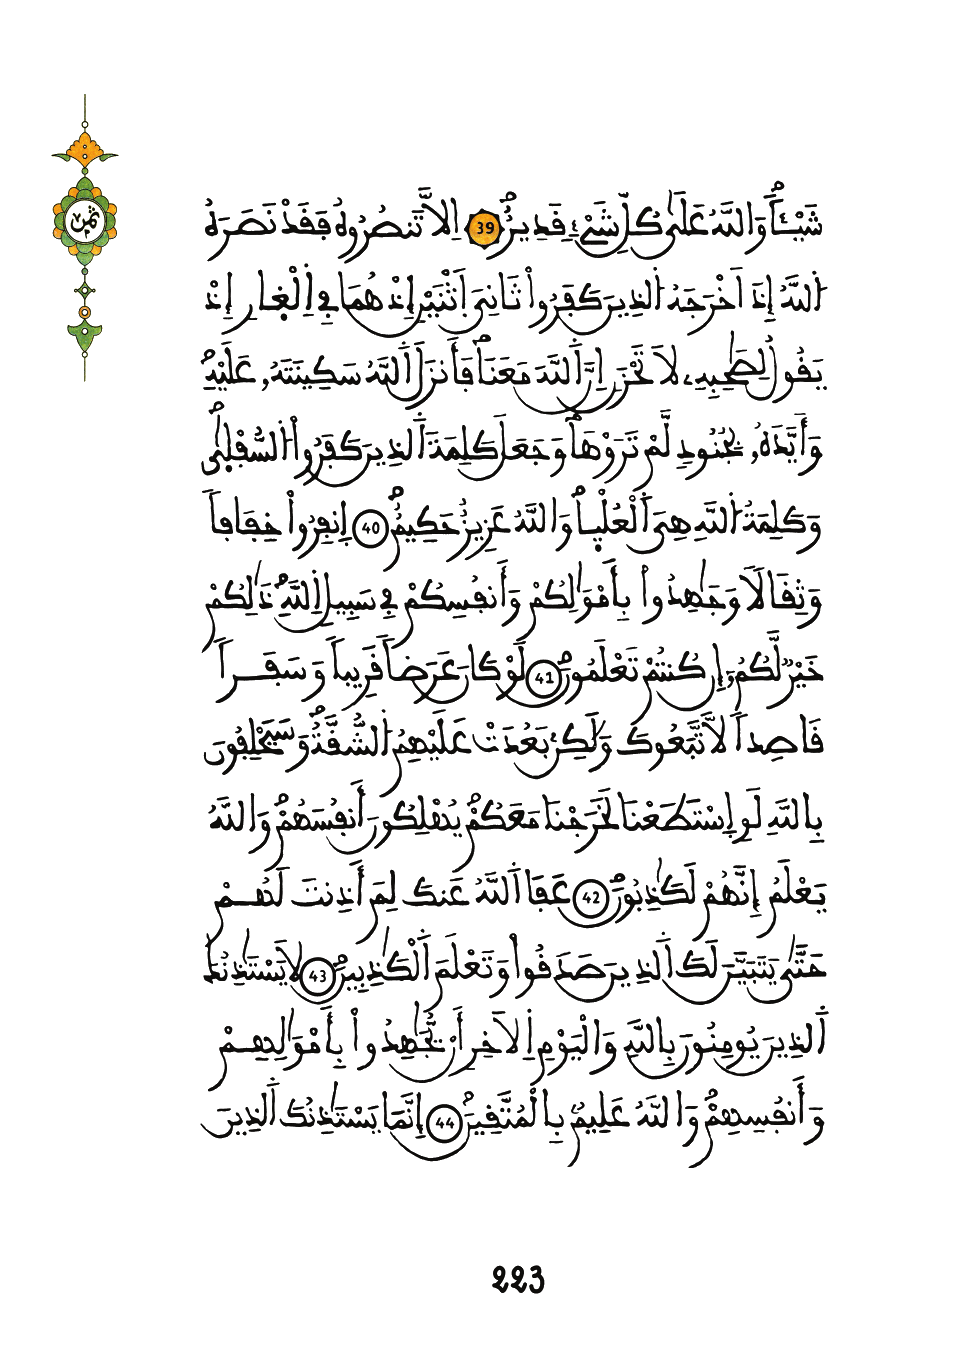 شَيْـٔاًۖ وَاللَّهُ عَلَىٰ كُلِّ شَےْءٖ قَدِيرٌۖ 39 اِلَّا تَنصُرُوهُ فَقَدْ نَصَرَهُ
اُ۬للَّهُ إِذَ اَخْرَجَهُ اُ۬لذِينَ كَفَرُواْ ثَانِيَ اَ۪ثْنَيْنِ إِذْ هُمَا فِے اِ۬لْغ۪ارِ إِذْ
يَقُولُ لِصَٰحِبِهِۦ لَا تَحْزَنِ اِنَّ اَ۬للَّهَ مَعَنَاۖ فَأَنزَلَ اَ۬للَّهُ سَكِينَتَهُۥ عَلَيْهِۖ
وَأَيَّدَهُۥ بِجُنُودٖ لَّمْ تَرَوْهَاۖ وَجَعَلَ كَلِمَةَ اَ۬لذِينَ كَفَرُواْ اُ۬لسُّفْل۪ىٰۖ
وَكَلِمَةُ اُ۬للَّهِ هِيَ اَ۬لْعُلْي۪اۖ وَاللَّهُ عَزِيزٌ حَكِيمٌۖ 40 اِنفِرُواْ خِفَافاٗ
وَثِقَالاٗ وَجَٰهِدُواْ بِأَمْوَٰلِكُمْ وَأَنفُسِكُمْ فِے سَبِيلِ اِ۬للَّهِۖ ذَٰلِكُمْ
خَيْرٞ لَّكُمُۥٓ إِن كُنتُمْ تَعْلَمُونَۖ 41 لَوْ كَانَ عَرَضاٗ قَرِيباٗ وَسَفَراٗ
قَاصِداٗ لَّاتَّبَعُوكَ وَلَٰكِنۢ بَعُدَتْ عَلَيْهِمُ اُ۬لشُّقَّةُۖ وَسَيَحْلِفُونَ
بِاللَّهِ لَوِ اِ۪سْتَطَعْنَا لَخَرَجْنَا مَعَكُمْۖ يُهْلِكُونَ أَنفُسَهُمْۖ وَاللَّهُ
يَعْلَمُ إِنَّهُمْ لَكَٰذِبُونَۖ 42 عَفَا اَ۬للَّهُ عَنكَ لِمَ أَذِنتَ لَهُمْ
حَتَّىٰ يَتَبَيَّنَ لَكَ اَ۬لذِينَ صَدَقُواْ وَتَعْلَمَ اَ۬لْكَٰذِبِينَۖ 43 لَا يَسْتَٰٔذِنُكَ
اَ۬لذِينَ يُومِنُونَ بِاللَّهِ وَالْيَوْمِ اِ۬لَاخِرِ أَنْ يُّجَٰهِدُواْ بِأَمْوَٰلِهِمْ
وَأَنفُسِهِمْۖ وَاللَّهُ عَلِيمُۢ بِالْمُتَّقِينَۖ 44 إِنَّمَا يَسْتَٰٔذِنُكَ اَ۬لذِينَ
ثمن
223